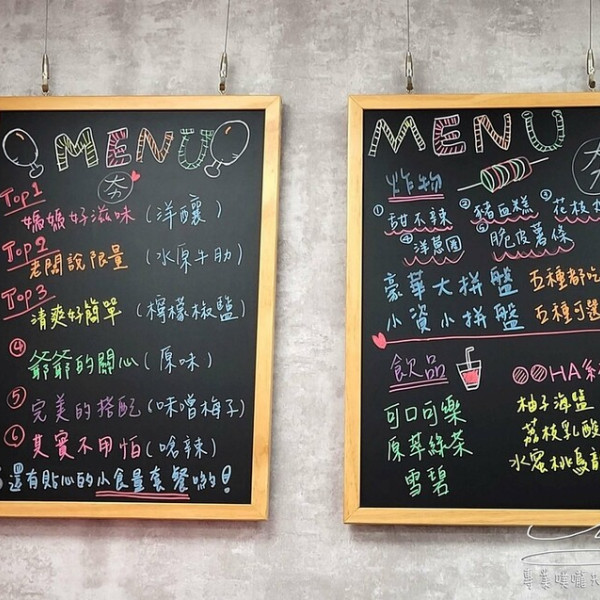 MENU
夯
Top1
嬤嬤好滋味 (洋釀)
Top2
老闆說限量 (水原牛肋)
Top3
清爽好簡單 (檸檬椒鹽)
④ 爺爺的關心 (原味)
⑤ 完美的搭配 (味噌梅子)
⑥ 其實不用怕 (嗆辣)
還有貼心的小食量套餐喲!
MENU
夯
炸物
① 甜不辣 ② 豬血糕 ③ 花枝
④ 洋蔥圈 ⑤ 脆皮薯條
豪華大拼盤 五種都吃
小資小拼盤 五種可選
飲品
可口可樂
原萃綠茶
雪碧
OOHA
柚子海鹽
荔枝乳酸
水蜜桃烏